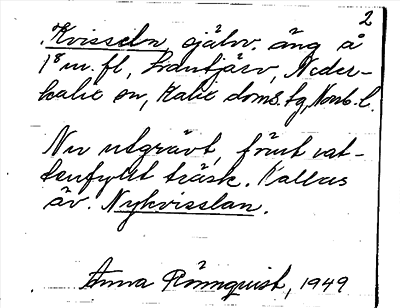 2
Kvisseln själv. äng å
1⁸ m. fl, Svartjärv, Neder-
kalix sn, Kalix doms. tg, Norrb. l.
Nu utgrävt, förut vat-
tenfylld träsk. Kallas
äv. Nykvisslan.
Anna Rönnquist, 1949